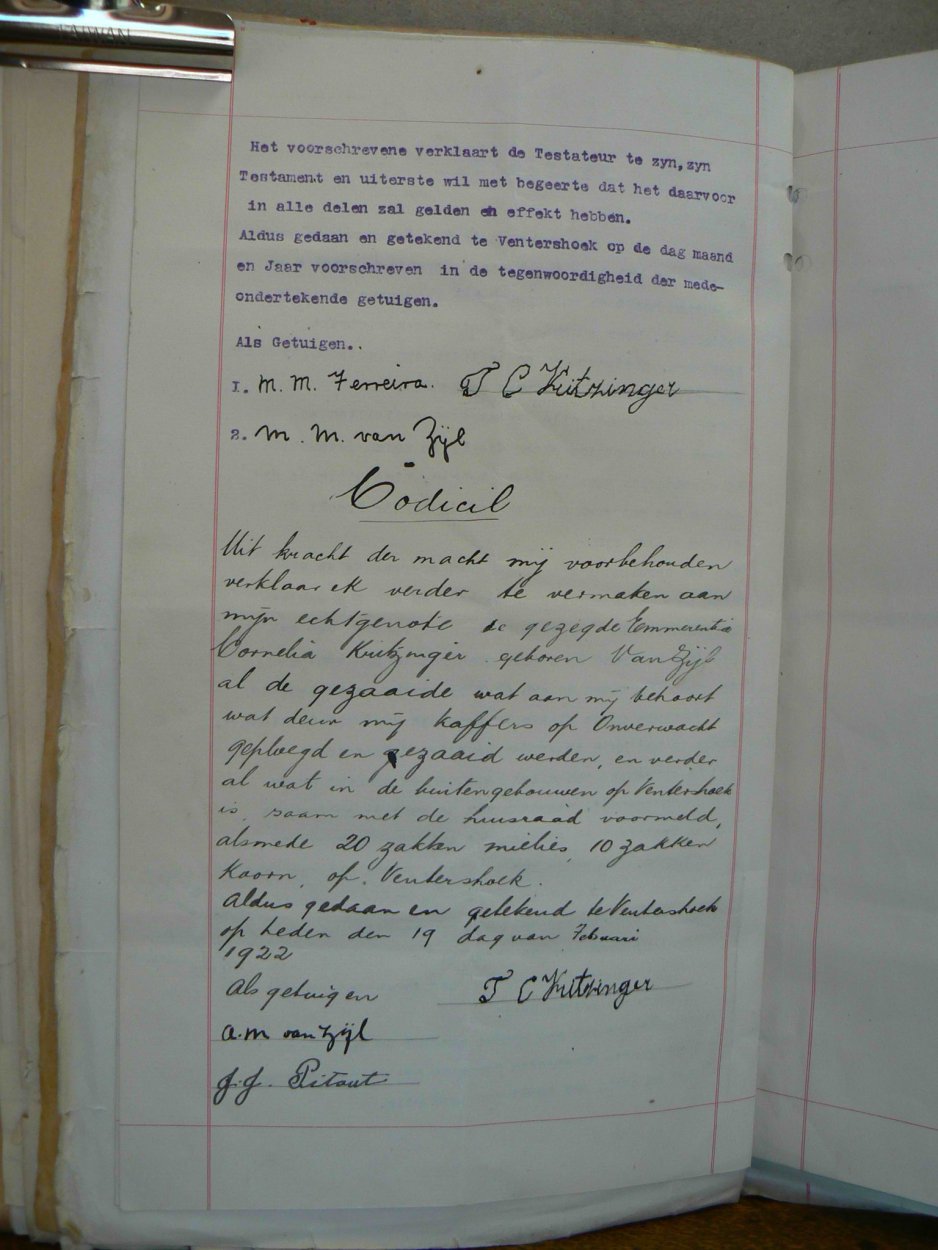 TAIWAN
Het voorschrevene verklaart de Testateur te zyn, zyn
Testament en uiterste wil met begeerte dat het daarvoor
in alle delen zal gelden en effekt hebben.
Aldus gedaan en getekend te Ventershoek op de dag maand
en Jaar voorschreven in de tegenwoordigheid der mede-
ondertekende getuigen.
Als Getuigen..
1. M. M. Ferreira. T C Kritzinger
2. M. M. van Zÿl
Codicil
Uit kracht der macht mij voorbehouden
verklaar ek verder te vermaken aan
mijn echtgenote de gezegde Emmerentia
Cornelia Kritzinger geboren Van Zÿl
al de gezaaide wat aan mij behoort
wat deur mij kaffers op Onverwacht
geploegd en gezaaid werden, en verder
al wat in de buitengebouwen op Ventershoek
is, saam met de huisraad voormeld,
alsmede 20 zakken mielies, 10 zakken
Koorn, op Ventershoek.
Aldus gedaan en getekend te Ventershoek
op heden den 19 dag van Februari
1922
Als getuigen T C Kritzinger
A. M van Zÿl
J. J. Pitout